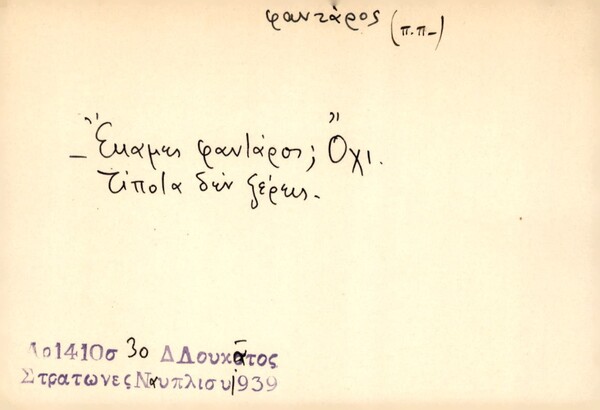 φαντάρος (π.π-)
– Ἔκαμες φαντάρος; Ὄχι.
Τίποτα δὲν ξέρεις.
Αρ1410σ 30 ΔΔουκᾶτος
ΣτρατωνεςΝαυπλισυ1939